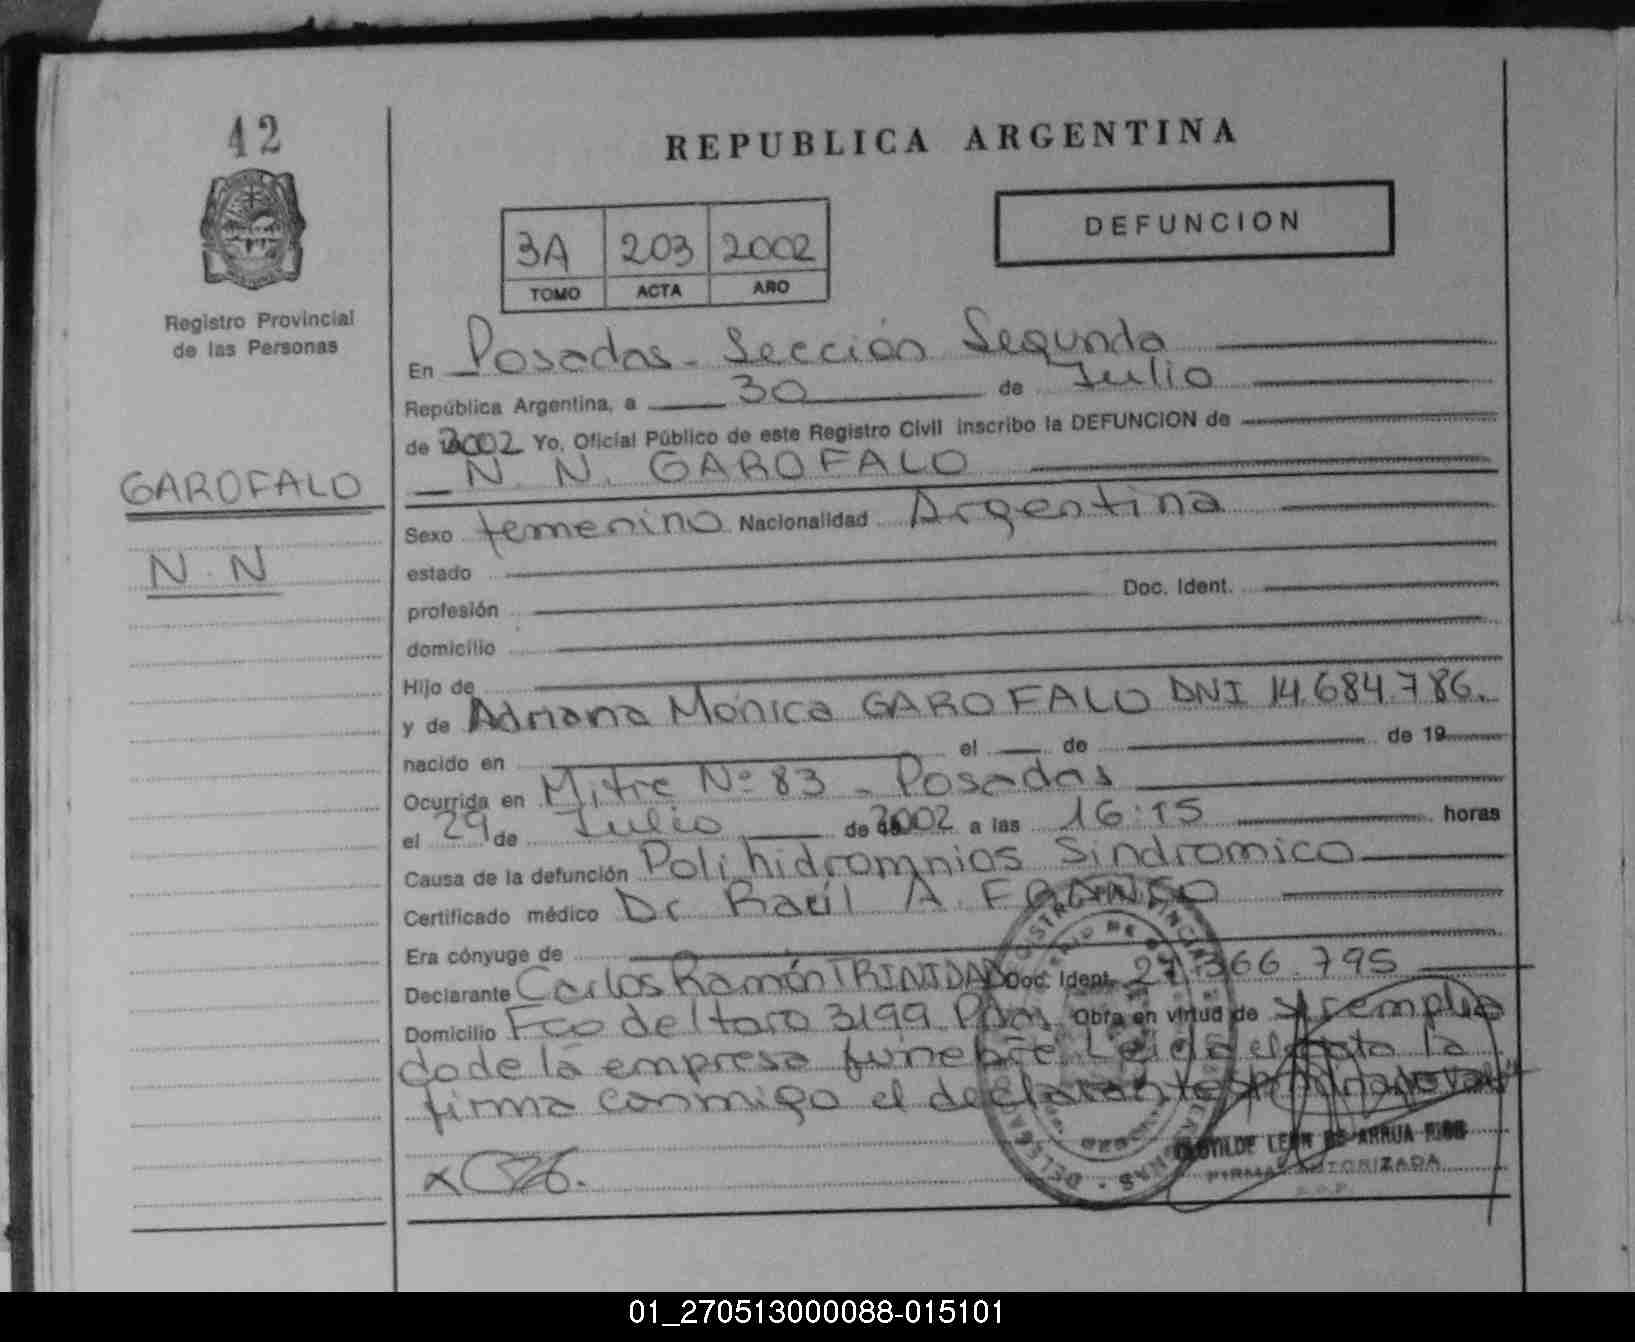 42
REPUBLICA ARGENTINA
DEFUNCION
3A 203 2002
TOMO ACTA AÑO
Registro Provincial
de las Personas
En Posadas - Sección Segunda
República Argentina, a 30 de Julio
de 2002 Yo, Oficial Público de este Registro Civil inscribo la DEFUNCION de
N. N. GAROFALO
GAROFALO
N. N
Sexo femenino Nacionalidad Argentina
estado
profesión Doc. Ident.
domicilio
Hijo de
y de Adriana Mónica GAROFALO DNI 14.684.786.
nacido en el de de 19
Ocurrida en Mitre Nº 83 - Posadas
el 29 de Julio de 2002 a las 16:15 horas
Causa de la defunción Polihidromnios Sindromico
Certificado médico Dr Raúl A. FRANCO
Era cónyuge de
Declarante Carlos Ramón TRINIDAD Doc. Ident. 27.366.795
Domicilio Fco del toro 3199 Pdas Obra en virtud de ser emplea
do de la empresa funebre Leida el acta la
firma conmigo el declarante
FIRMA AUTORIZADA
01_270513000088-015101